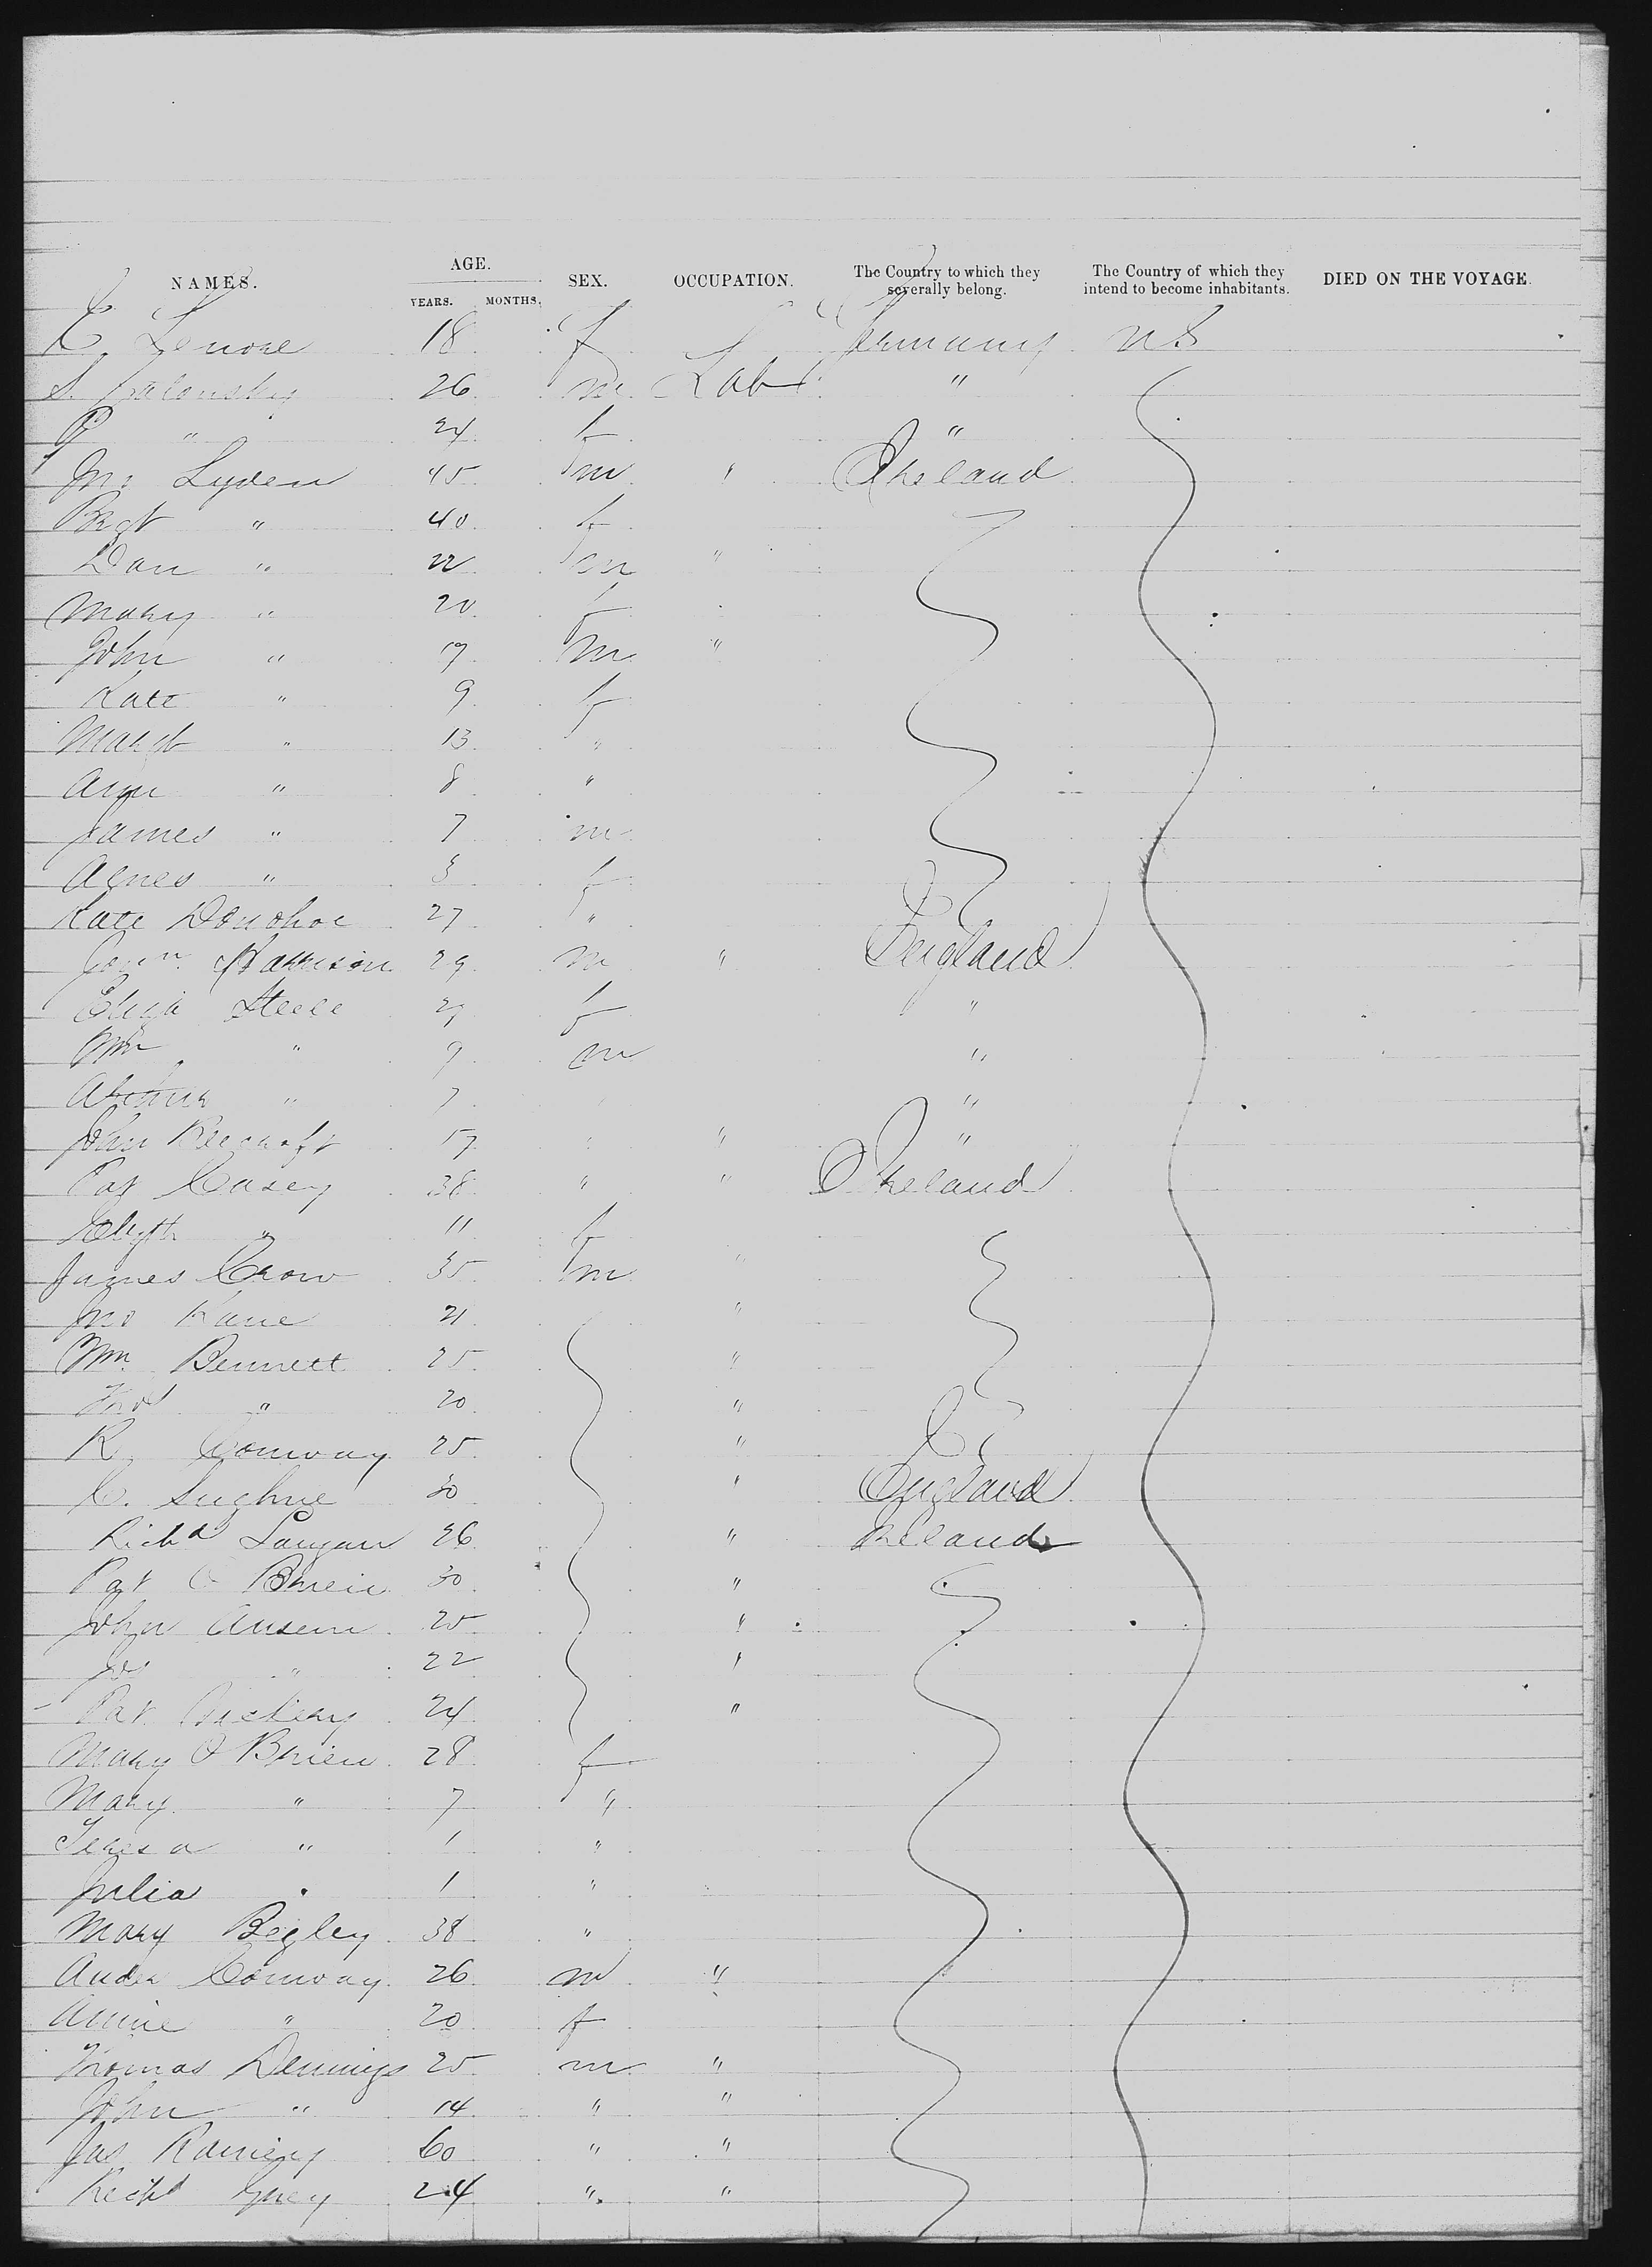 NAMES. AGE. YEARS. MONTHS. SEX. OCCUPATION. The Country to which they severally belong. The Country of which they intend to become inhabitants. DIED ON THE VOYAGE.
18 f Germany U S
S. 26 m Lab "
" 24 f "
Jno Lyden 45 m " Ireland
Brgt " 40 f
Dan " 22 m "
Mary " 20 f
John " 19 m "
Kate " 9 f
Margt " 13 "
Ann " 8 "
James " 7 m
Agnes " 3 f
Kate Donohoe 27 "
Harrison 29 m " England
Eliza Steele 29 f "
Wm " 9 m "
Arthur " 7 "
John 17 " " "
Pat Casey 38 " " Ireland
Elizth " 11 f
James Crow 35 m "
Jno Kane 21 "
Wm Bennett 25 "
Thos " 20 "
R Conway 25 "
C. Sughrue 30 " England
Richd Langan 26 " Ireland
Pat O Brien 30 "
John 25 "
Jos " 22 "
Pat 24 "
Mary O Brien 28 f
Mary " 7 "
Teresa " 1 "
Julia " 1 "
Mary Begley 38 "
Andr Conway 26 m "
Annie " 20 f
Thomas Dennings 25 m "
John " 14 " "
Jas 60 " "
Grey 24 " "